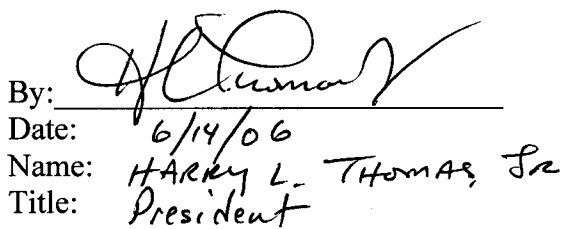 By: HL Thomas Jr
Date: 6/14/06
Name: HARRY L. THOMAS, JR
Title: President